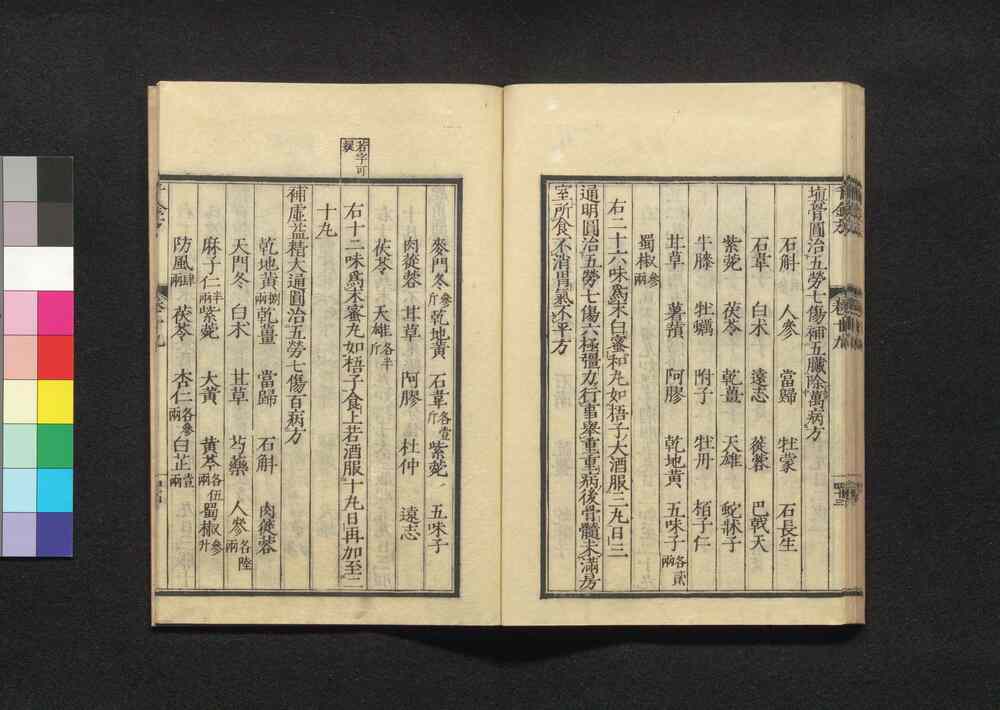 填骨圓治五勞七傷補五臟除萬病方
石斛 人參 當歸 牡蒙 石長生
石韋 白朮 遠志 蓯蓉 巴戟天
紫菀 茯苓 乾薑 天雄 蛇牀子
牛膝 牡蠣 附子 牡丹 栢子仁
甘草 薯蕷 阿膠 乾地黃 五味子各貳兩
蜀椒參兩
右二十六味爲末白蜜和丸如梧子大酒服三丸日三
通明圓治五勞七傷六極彊力行事舉重重病後骨髓未滿房
室所食不消胃氣不平方
麥門冬參斤 乾地黃 石韋各壹斤 紫菀 五味子
肉蓯蓉 甘草 阿膠 杜仲 遠志
茯苓 天雄各半斤
若字可
右十二味爲末蜜丸如梧子食上若酒服十丸日再加至二
十丸
補虛益精大通圓治五勞七傷百病方
乾地黃捌兩 乾薑 當歸 石斛 肉蓯蓉
天門冬 白朮 甘草 芍藥 人參各陸兩
麻子仁半兩 紫菀 大黃 黃芩各伍兩 蜀椒參升
防風肆兩 茯苓 杏仁各參兩 白芷壹兩